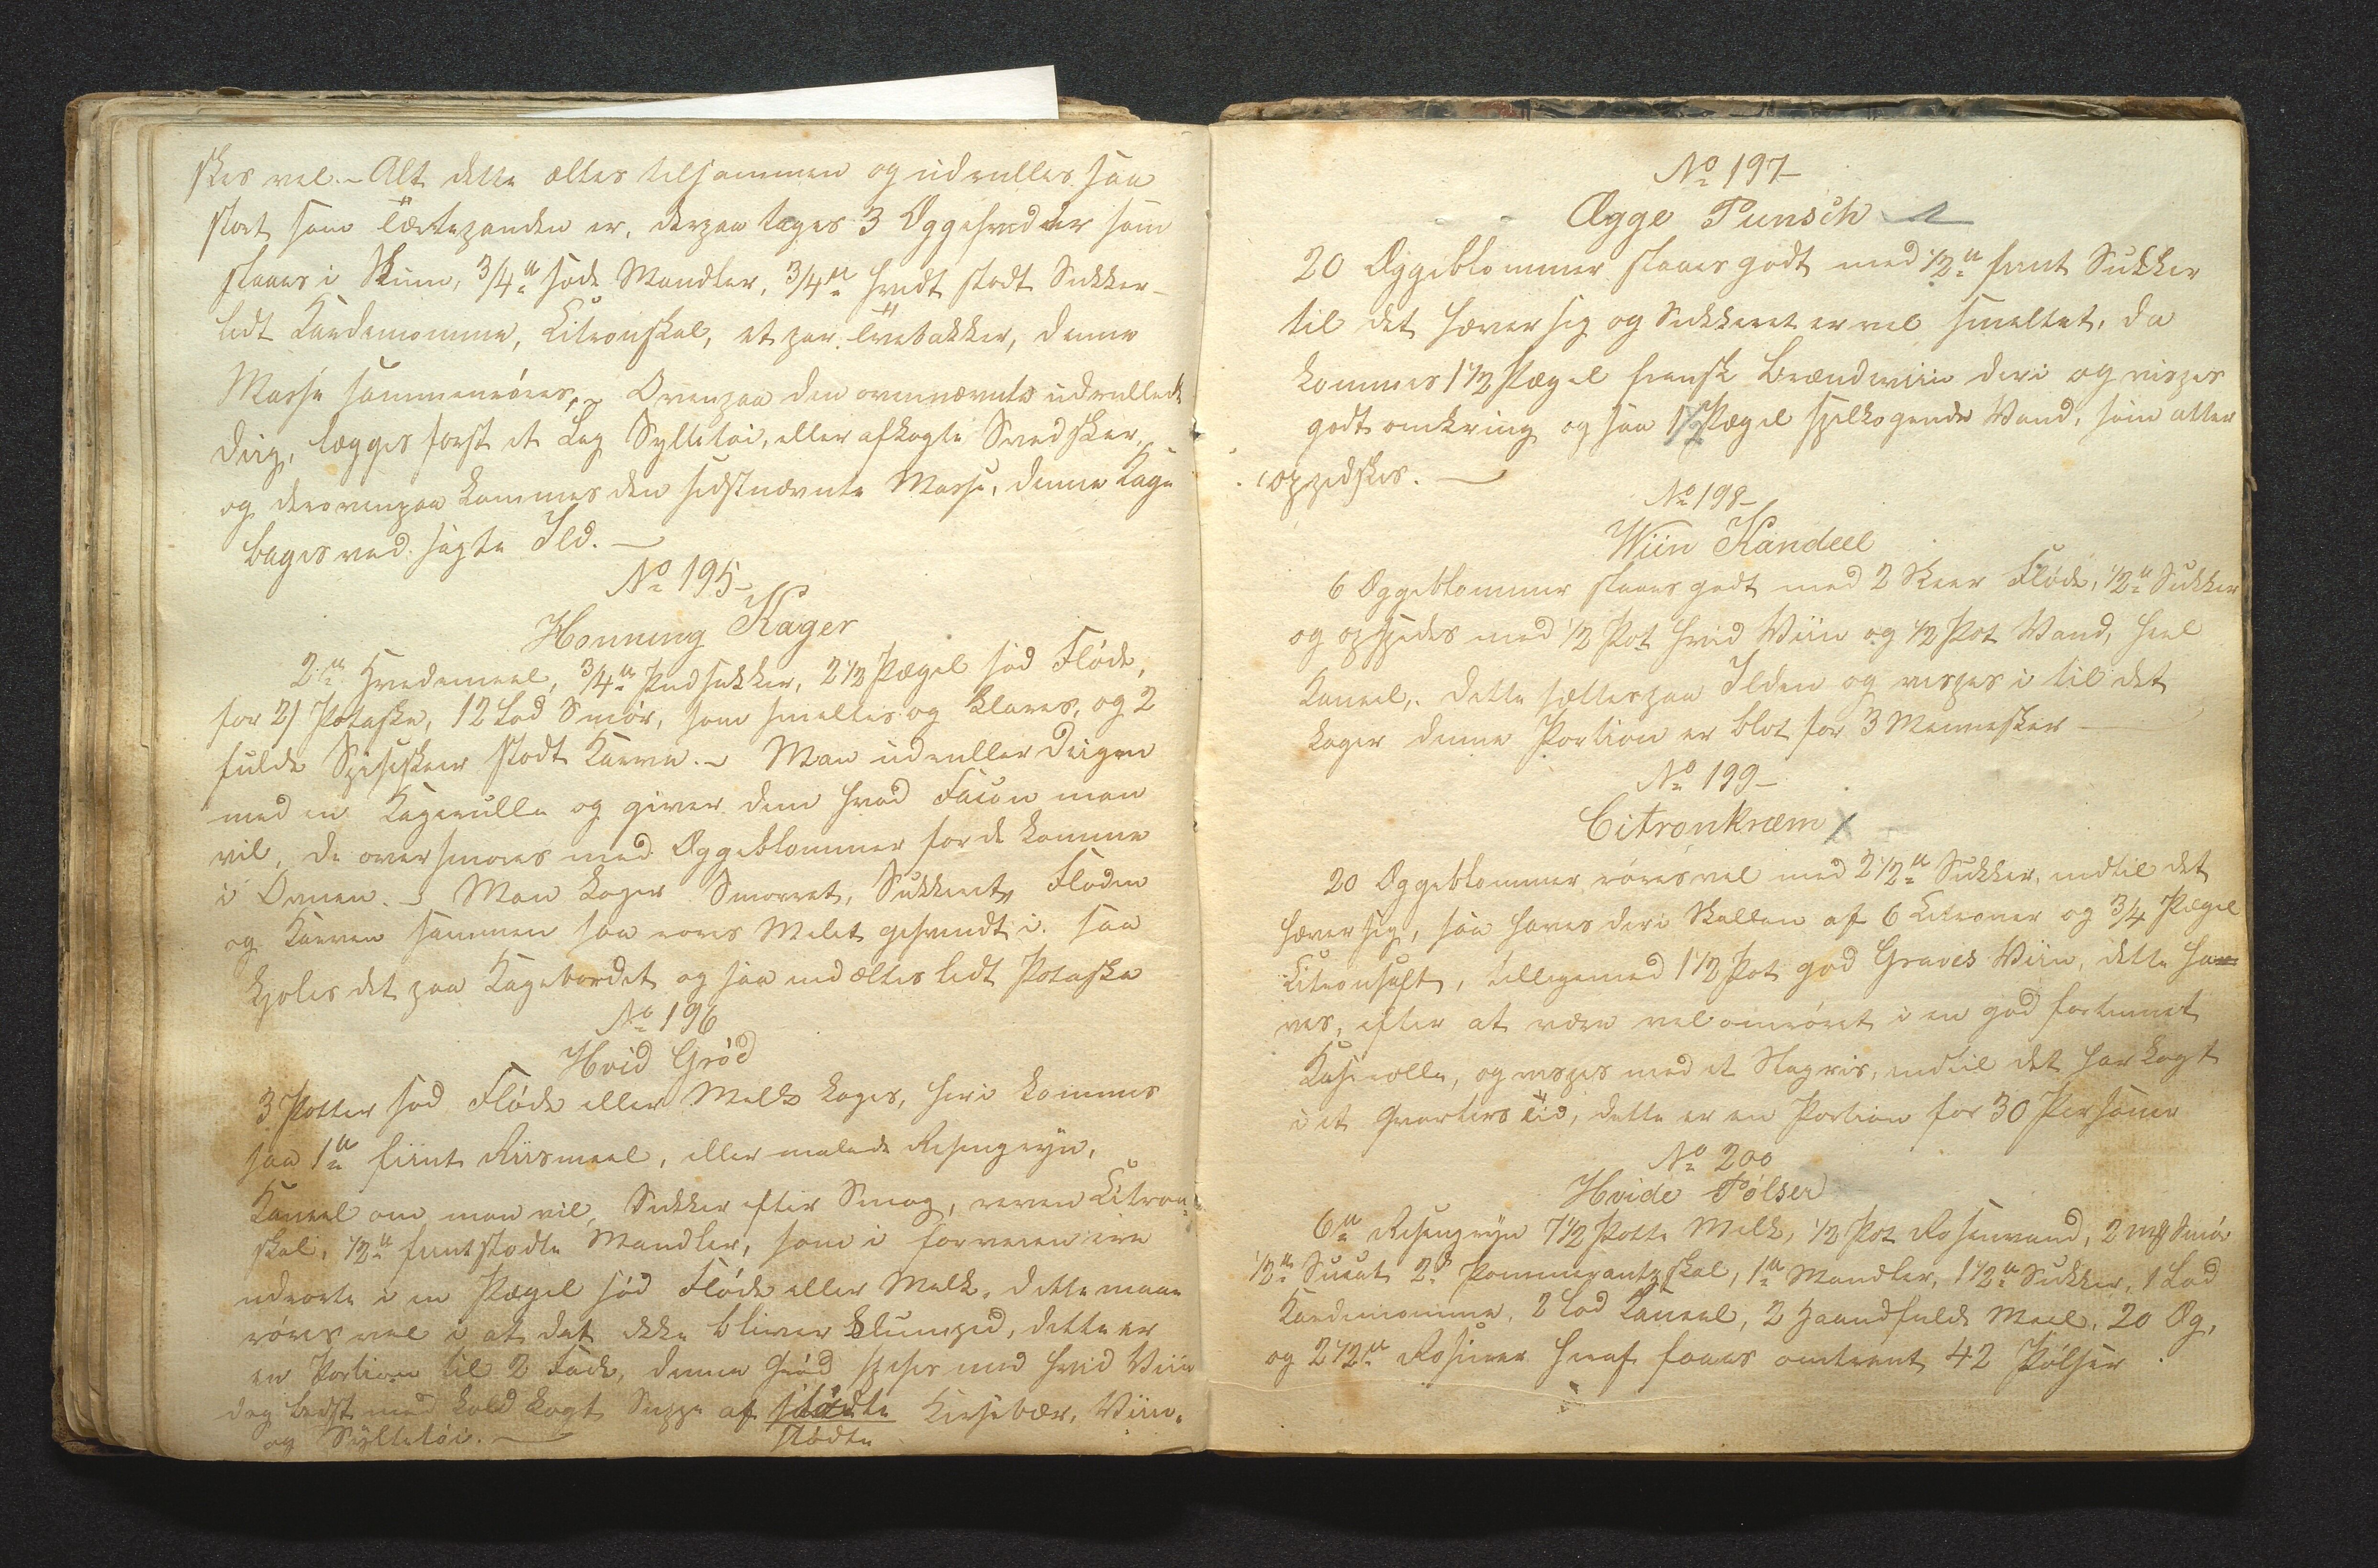 skes vel. – Alt dette æltes tilsammen og udrulles saa
stort som Tærtepanden er, derpaa tages 3 Æggehvidder som
slaaes i Skum, 3/4 ℔ søde Mandler, 3/4 ℔ hvidt stødt Sukker –
lidt Kardemomme, Citronskal, et par Tvebakker, denne
Masse sammenrøres, – Ovenpaa den ovennævnte udrullede
Deig, lægges først et Lag Syltetøi, eller afkogte Svedsker,
og derovenpaa kommes den sidstnævnte Masse, denne Kage
bages ved sagte Ild. –
No 195 –
Honning Kager
2 ℔ Hvedemeel, 3/4 ℔ Pudsukker, 2 1/2 Pægel sød Fløde,
for 2 ſ Potaske, 12 Lod Smør, som smeltes og klares, og 2
fulde Spiseskeer stødt Karve. – Man udruller Deigen
med en Kagerulle og giver dem hvad Facon man
vil, de oversmøres med Æggeblommer før de komme
i Ovnen. – Man koger Smørret, Sukkeret, Fløden
og Karven sammen saa røres Melet geschwindt i. saa
kjøles det paa Kagebordet og saa indæltes lidt Potaske
No 196
Hvid Grød
3 Potter sød Fløde eller Melk koges, heri kommes
saa 1 ℔ fiint Riismeel, eller malede Risengryn,
Kaneel om man vil, Sukker efter Smag, reven Citron-
skal, 1/2 ℔ fiintstødte Mandler, som i forveien ere
udrørte i en Pægel sød Fløde eller Melk, dette maae
røres vel i at det ikke bliver klumped, dette er
en Portion til 2 Fade, denne Grød spises med hvid Viin
dog bedst med kold kogt Suppe af stødte Kirsebær, Viin,
og Syltetøi. – stødte
No 197 –
Ægge Punsch
20 Æggeblommer slaaes godt med 1/2 ℔ fiint Sukker
til det hæver sig og Sukkeret er vel smeltet, da
kommes 1 1/2 Pægel fransk Brændeviin deri og vispes
godt omkring og saa 1 1/2 Pægel spilkogende Vand, som atter
oppidskes. –
No 198 –
Wiin Kandeel
6 Æggeblommer slaaes godt med 2 Skeer Fløde, 1/2 ℔ Sukker
og opspedes med 1/2 Pot hvid Viin og 1/2 Pot Vand, heel
Kaneel, dette sættes paa Ilden og vispes i til det
koger denne Portion er blot for 3 Mennesker –
No 199 –
Citronkræm
20 Æggeblommer røres vel med 2 1/2 ℔ Sukker, indtil det
hæver sig, saa haves deri Skallen af 6 Citroner og 3/4 Pægel
Citronsaft, tilligemed 1 1/2 Pot god Graves Viin, dette ha
ves, efter at være vel omrørt i en god fortinnet
Kaserolle, og vispes med et Slagris, indtil det har kogt
i et Qvarters Tid, dette er en Portion for 30 Personer
No 200
Hvide Pølser
6 ℔ Risengryn 7 1/2 Potte Melk, 1/2 Pot Rosenvand, 2 m℔ Smør
1/2 ℔ Sucat 2 ß Pommerantzskal, 1 ℔ Mandler, 1 1/2 ℔ Sukker, 1 Lod
Kardemomme, 2 Lod Kaneel, 2 Haandfulde Meel, 20 Æg,
og 2 1/2 ℔ Rosiner heraf faaes omtrent 42 Pølser